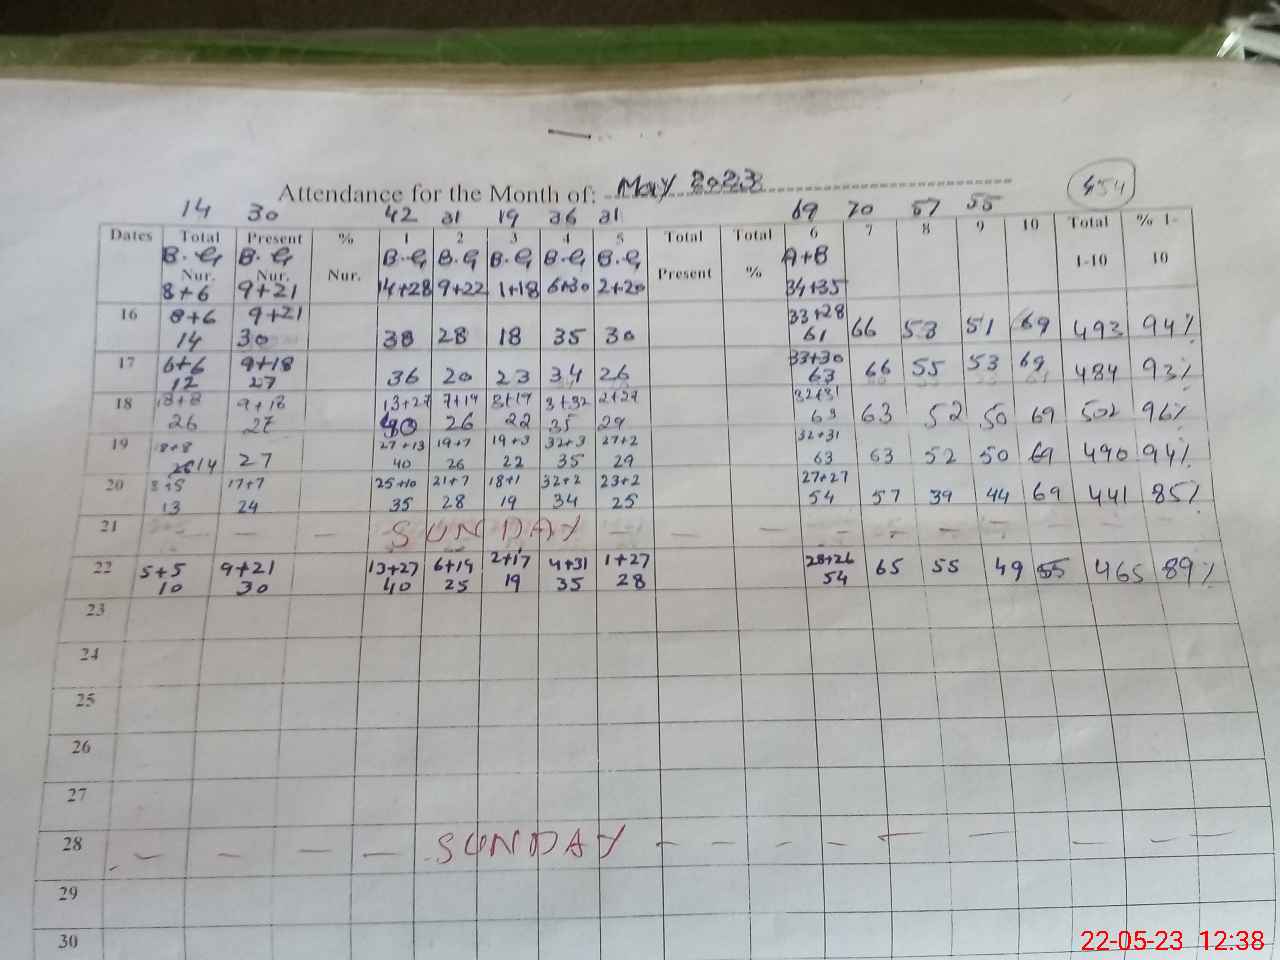 Attendance for the Month of: May 2023
14 30 42 31 19 36 31 69 70 57 55
Dates Total Present % 1 2 3 4 5 Total Total 6 7 8 9 10 Total % 1-
B.G B.G B.G B.G B.G B.G B.G A+B
Nur. Nur. Nur. Present % 1-10 10
8+6 9+21 14+28 9+22 1+18 6+30 2+20 34+35
16 8+6 9+21 33+28
14 30 38 28 18 35 30 61 66 53 51 69 493 94%
17 6+6 9+18 33+30
12 27 36 20 23 34 26 63 66 55 53 69 484 93%
18 18+8 9+18 13+27 7+19 3+19 3+32 2+27 32+31
26 27 40 26 22 35 29 63 63 52 50 69 502 96%
19 18+8 27+13 19+7 19+3 32+3 27+2 32+31
14 27 40 26 22 35 29 63 63 52 50 69 490 94%
20 8+5 17+7 25+10 21+7 18+1 32+2 23+2 27+27
13 24 35 28 19 34 25 54 57 39 44 69 441 85%
21 - - - SUNDAY - - - - - - -
22 5+5 9+21 13+27 6+19 2+17 4+31 1+27 28+26
10 30 40 25 19 35 28 54 65 55 49 55 465 89%
23
24
25
26
27
28 - - - - SUNDAY - - - - - - - - -
29
30
22-05-23 12:38